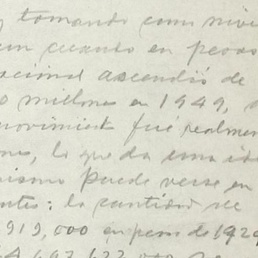 y tomando como nive
un cuanto en pesos
nacional ascendió de
0 millones en 1949, a
movimiento fué realmen
nes, lo que da una ide
mismo puede verse en
ntes: la cantidad de
919,000 en pesos de 1929
4,697,622,000